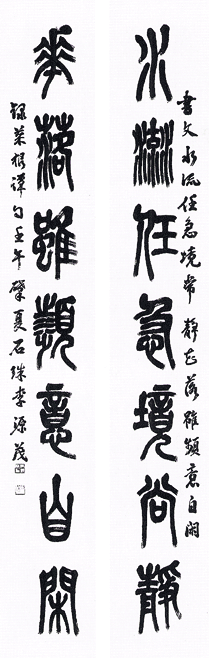 書文水流任急境常靜花落雖頻意自閑
水流任急境尚靜
華落雖頻意自閑
録菜根譚句壬午肇夏石珠李源茂